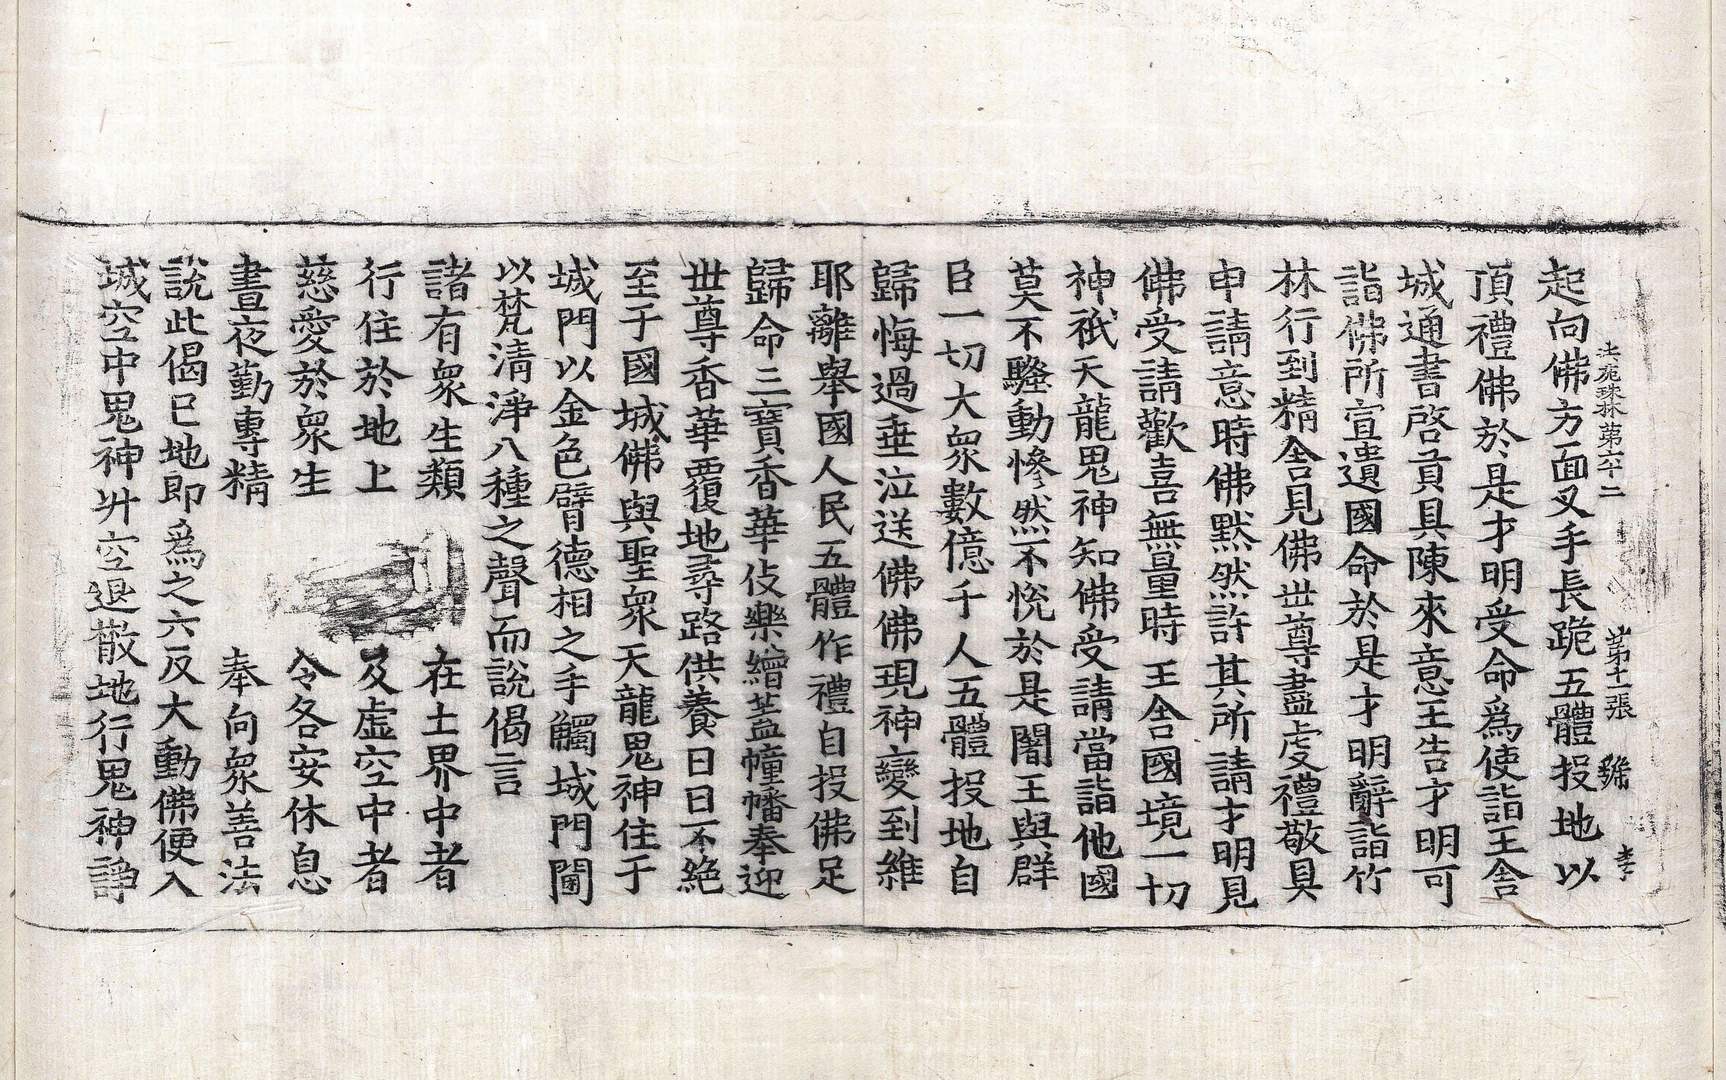 法苑珠林第六十二 第十一張 雞 李
起向佛方面叉手長跪五體投地以
頂禮佛於是才明受命爲使詣王舍
城通書啓貢具陳來意王告才明可
詣佛所宣遺國命於是才明辭詣竹
林行到精舍見佛世尊盡虔禮敬具
申請意時佛默然許其所請才明見
佛受請歡喜無量時王舍國境一切
神祇天龍鬼神知佛受請當詣他國
莫不騷動慘然不悅於是闍王與群
臣一切大衆數億千人五體投地自
歸悔過垂泣送佛佛現神變到維
耶離舉國人民五體作禮自投佛足
歸命三寶香華伎樂繒蓋幢幡奉迎
世尊香華覆地尋路供養日日不絶
至于國城佛與聖衆天龍鬼神住于
城門以金色臂德相之手觸城門閫
以梵清淨八種之聲而說偈言
諸有衆生類 在土界中者
行住於地上 及虛空中者
慈愛於衆生 令各安休息
晝夜勤專精 奉向衆善法
說此偈已地即爲之六反大動佛便入
城空中鬼神昇空退散地行鬼神諍